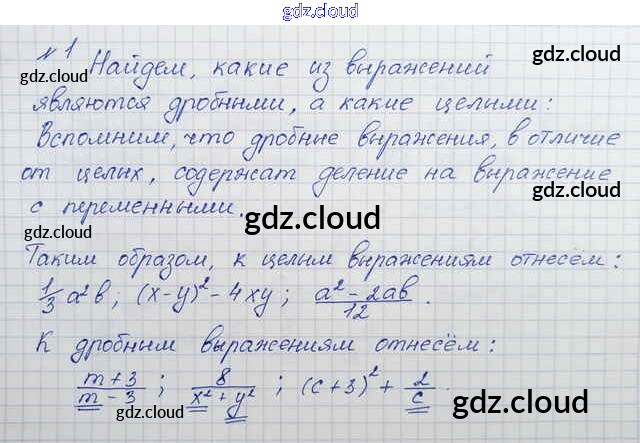 gdz.cloud
№ 1
gdz.cloud
gdz.cloud
Найдем, какие из выражений
являются дробными, а какие целыми:
Вспомним, что дробные выражения, в отличие
от целых, содержат деление на выражение
с переменными.
gdz.cloud
gdz.cloud
gdz.cloud
Таким образом, к целым выражениям отнесём:
1/3 a²b ; (x-y)² - 4xy ; (a² - 2ab)/12 .
gdz.cloud
gdz.cloud
К дробным выражениям отнесём:
(m+3)/(m-3) ; 8/(x²+y²) ; (c+3)² + 2/c .
gdz.cloud
gdz.cloud